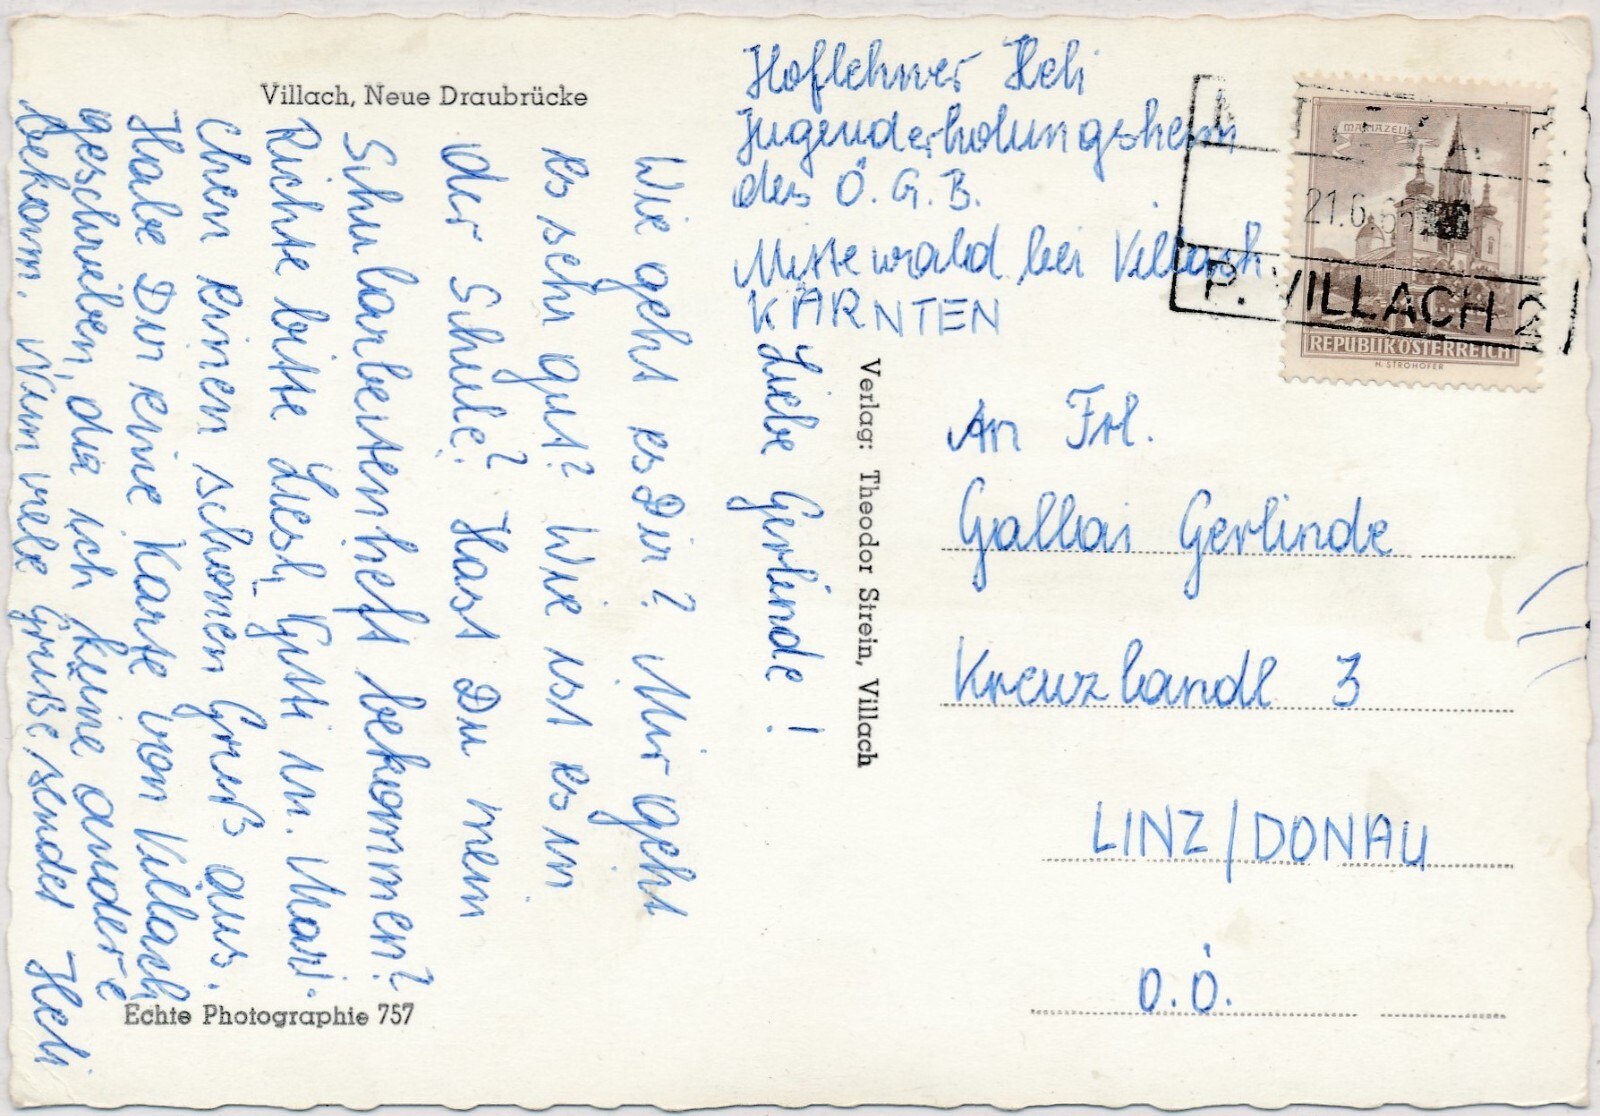 Villach, Neue Draubrücke
Hoflehner Heli
Jugenderholungsheim
des Ö. G. B.
Mittewald bei Villach
KÄRNTEN
Liebe Gerlinde!
Wie geht es Dir? Mir geht
es sehr gut? Wie ist es in
der Schule? Hast Du mein
Schularbeitenheft bekommen?
Richte bitte Liesl, Gitti u. Mari.
chen einen schönen Gruß aus.
Habe Dir eine Karte von Villach
geschrieben, da ich keine andere
bekam. Viele Grüße sendet Heli
Echte Photographie 757
Verlag: Theodor Strein, Villach
MARIAZELL
21.6.
P. VILLACH 2
REPUBLIK ÖSTERREICH
H. STROHOFER
An Frl.
Gallai Gerlinde
Kreuzlandl 3
LINZ/DONAU
O.Ö.